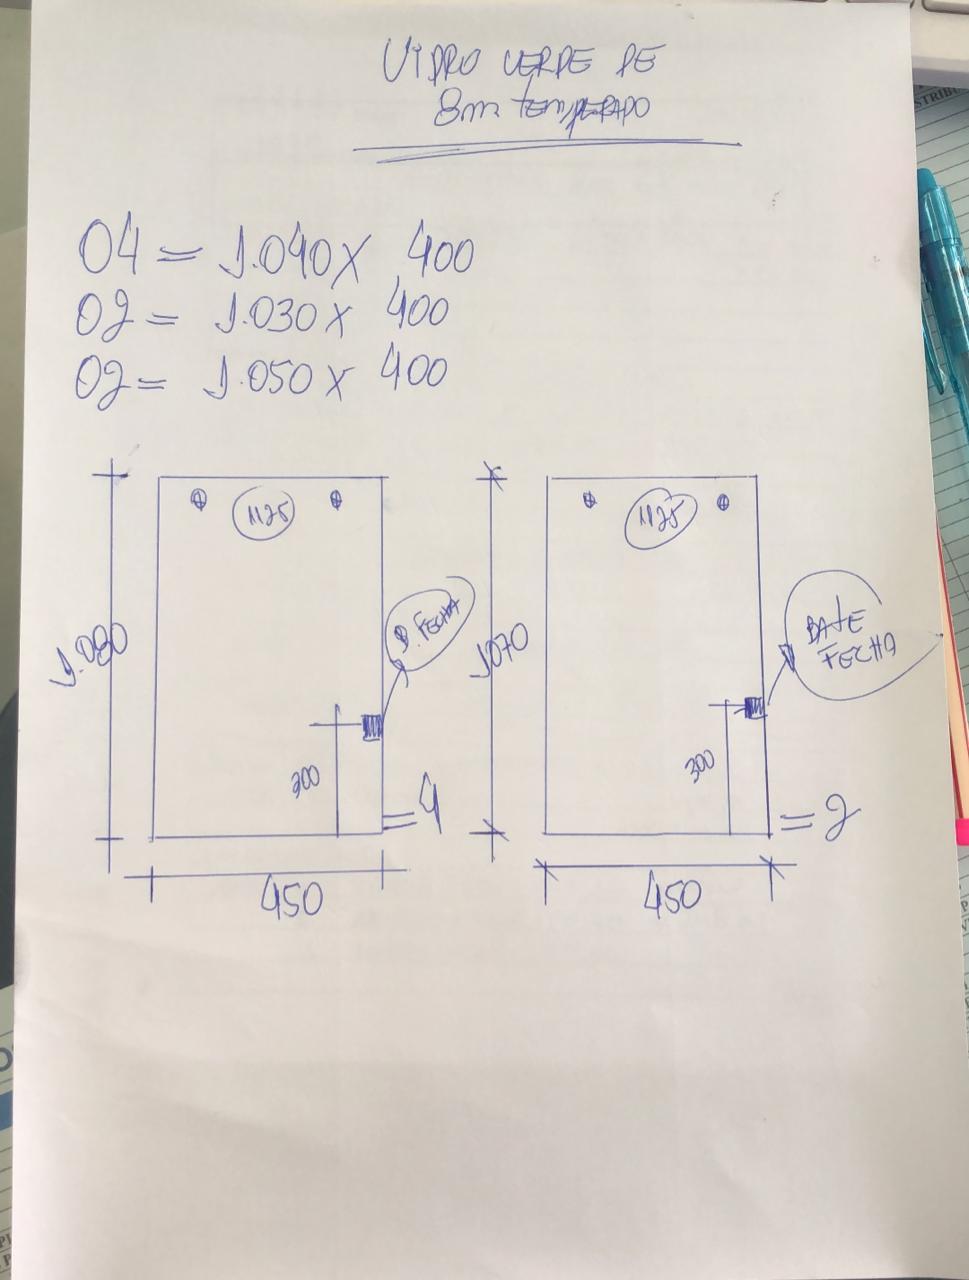 VIDRO VERDE DE
8m TEMPERADO
04 = 1.040 X 400
02 = 1.030 X 400
02 = 1.050 X 400
1125
1125
B. FECHA
BATE
FECHA
1070
300
= 4
= 2
450
450